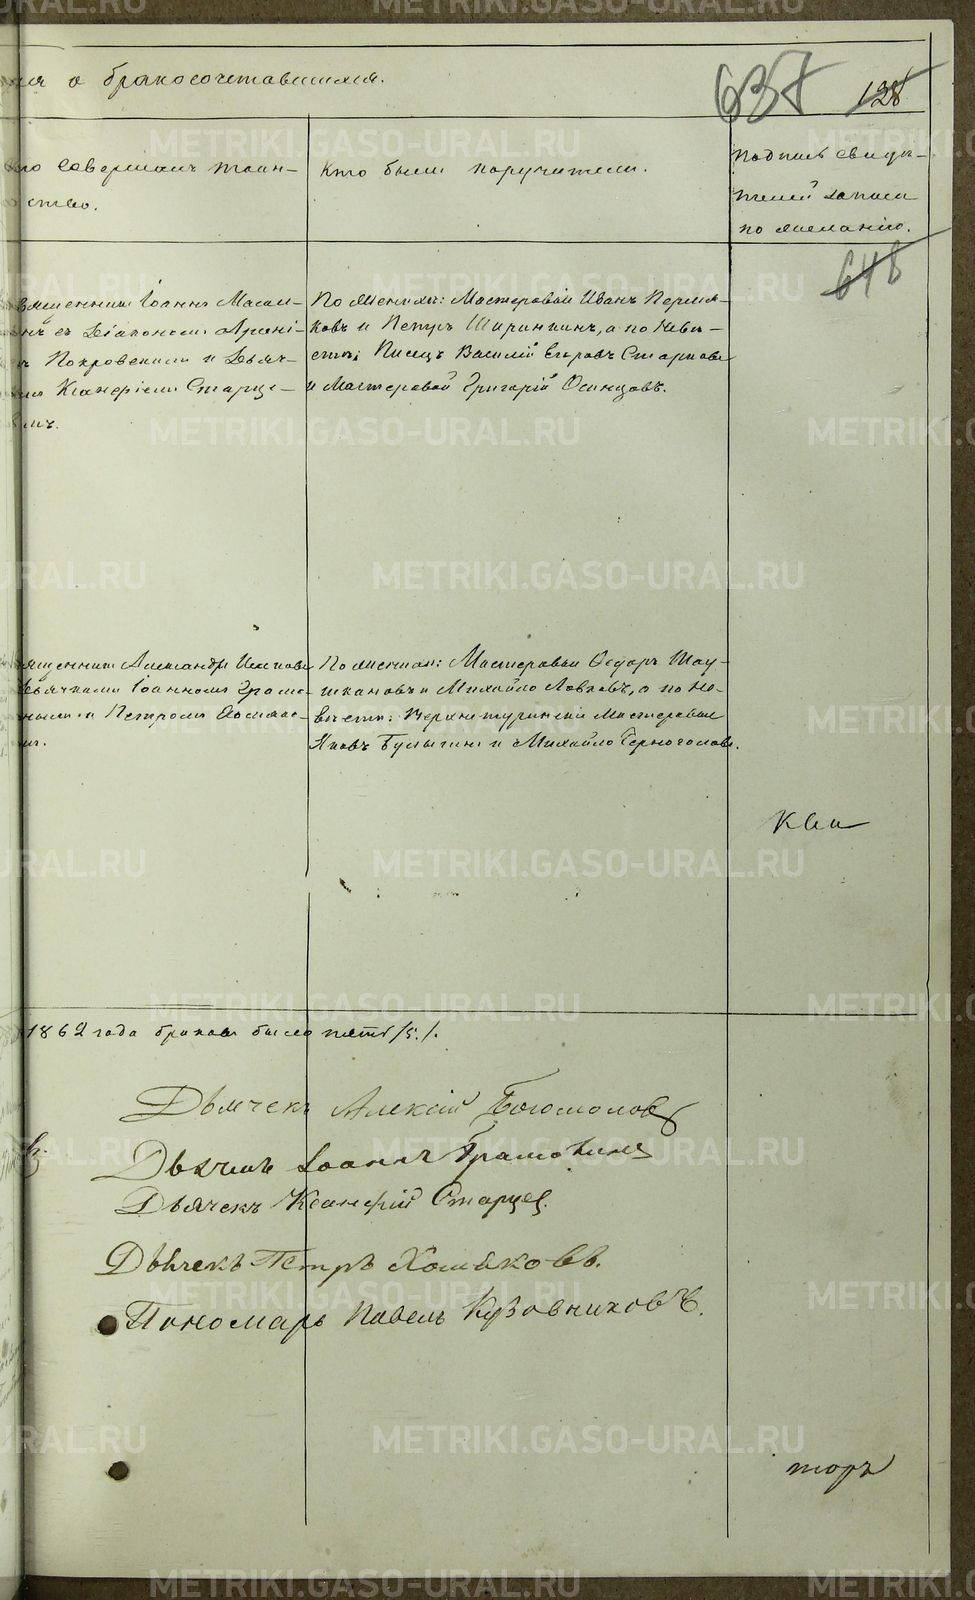 о бракосочетавшихся.
637 128
совершалъ таин-
ство.
Кто были поручители.
Подпись свидѣ-
телей записи
по желанію.
648
Іоаннъ Масал-
съ Діакономъ Арсені-
Покровскимъ и Дьяч-
Ксанфіемъ Старце-
По женихѣ: Мастеровой Иванъ Пермя-
ковъ и Петръ Ширинкинъ, а по невѣ-
стѣ; Писецъ Василій Егоровъ Старковъ
и Мастеровой Григорій Осинцовъ.
Александръ
Іоанномъ Грамо-
и Петромъ Хомяко-
По женихѣ: Мастеровые Ѳедоръ Шау-
и Михайло Ловковъ, а по не-
вѣстѣ: Верхнетуринскіе Мастеровые
Яковъ Булыгинъ и Михайло Черноголовъ.
1862 года браковъ было пять /5/.
Дьячекъ Алексій Богомоловъ
Дьячекъ Іоаннъ Грамотинъ
Дьячекъ Ксанфій Старцев
Дьячекъ Петръ Хомяковъ.
Пономарь Павелъ Кузовниковъ.
торъ
METRIKI.GASO-URAL.RU